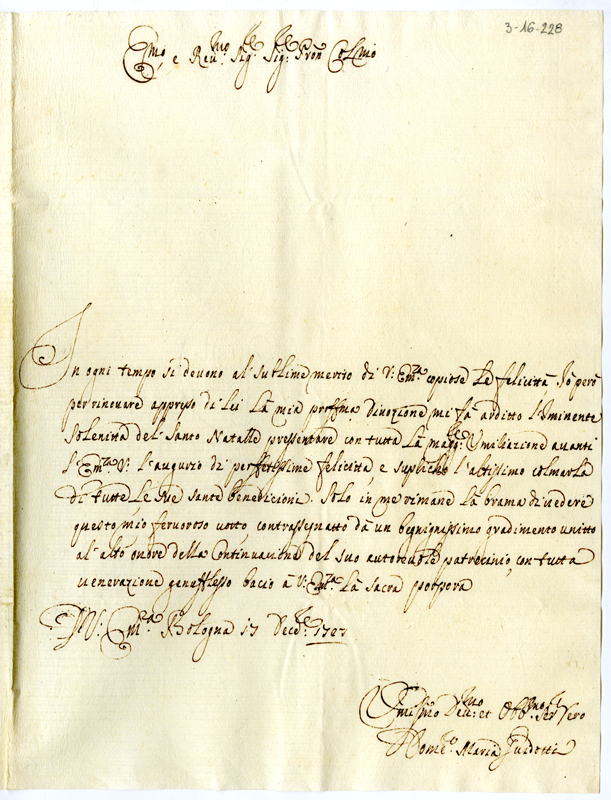 3-16-228
Emo, e Reumo. Sig:re Sig:re Pron Colmo
In ogni tempo si devono al' sublime merito di V: Emza. copiose Le felicitta Io però
per rinovare appreso di Lei La mia proffma. Divozione, mi fà arditto l'Uminente
solenità del' Santo Natalle pressentare con tutta La magg:re Vmiliazione avanti
l'Emza V: l'augurio di perffetissime felicita e suplicho l'altissimo colmarla
di tutte Le sue sante benedicioni. Solo in me rimane La brama di vedere
questo mio fervoroso votto contrassegnatto dà un begnignissimo gradimento unitto
al' alto onore della Continuazione del suo autorevole patrocinio, con tutta
venerazione genufflesso bacio à V: Emza. La sacra porpora
D V: Emza. Bologna 17 Decb:re 1727
Vmilsmo Deu:mo et Obb:mo Ser:re Vero
Dome:co Maria Guidetti